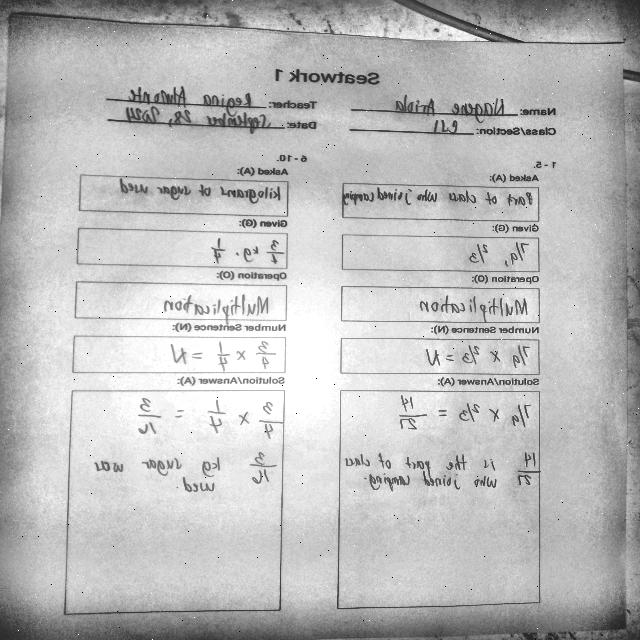 Seatwork 1
Name: Nagene Ariola
Teacher: Regina Almonte
Class/Section:
Date: September 28, 2021
1 - 5.
Asked (A):
Part of class who joined camping
Given (G):
7/9, 2/3
Operation (O):
Multiplication
Number Sentence (N):
7/9 x 2/3 = N
Solution/Answer (A):
7/9 x 2/3 = 14/27
14/27 is the part of class
who joined camping.
6 - 10.
Asked (A):
kilograms of sugar used
Given (G):
3/4 kg. 1/4
Operation (O):
Multiplication
Number Sentence (N):
3/4 x 1/4 = N
Solution/Answer (A):
3/4 x 1/4 = 3/16
3/16 kg sugar was
used